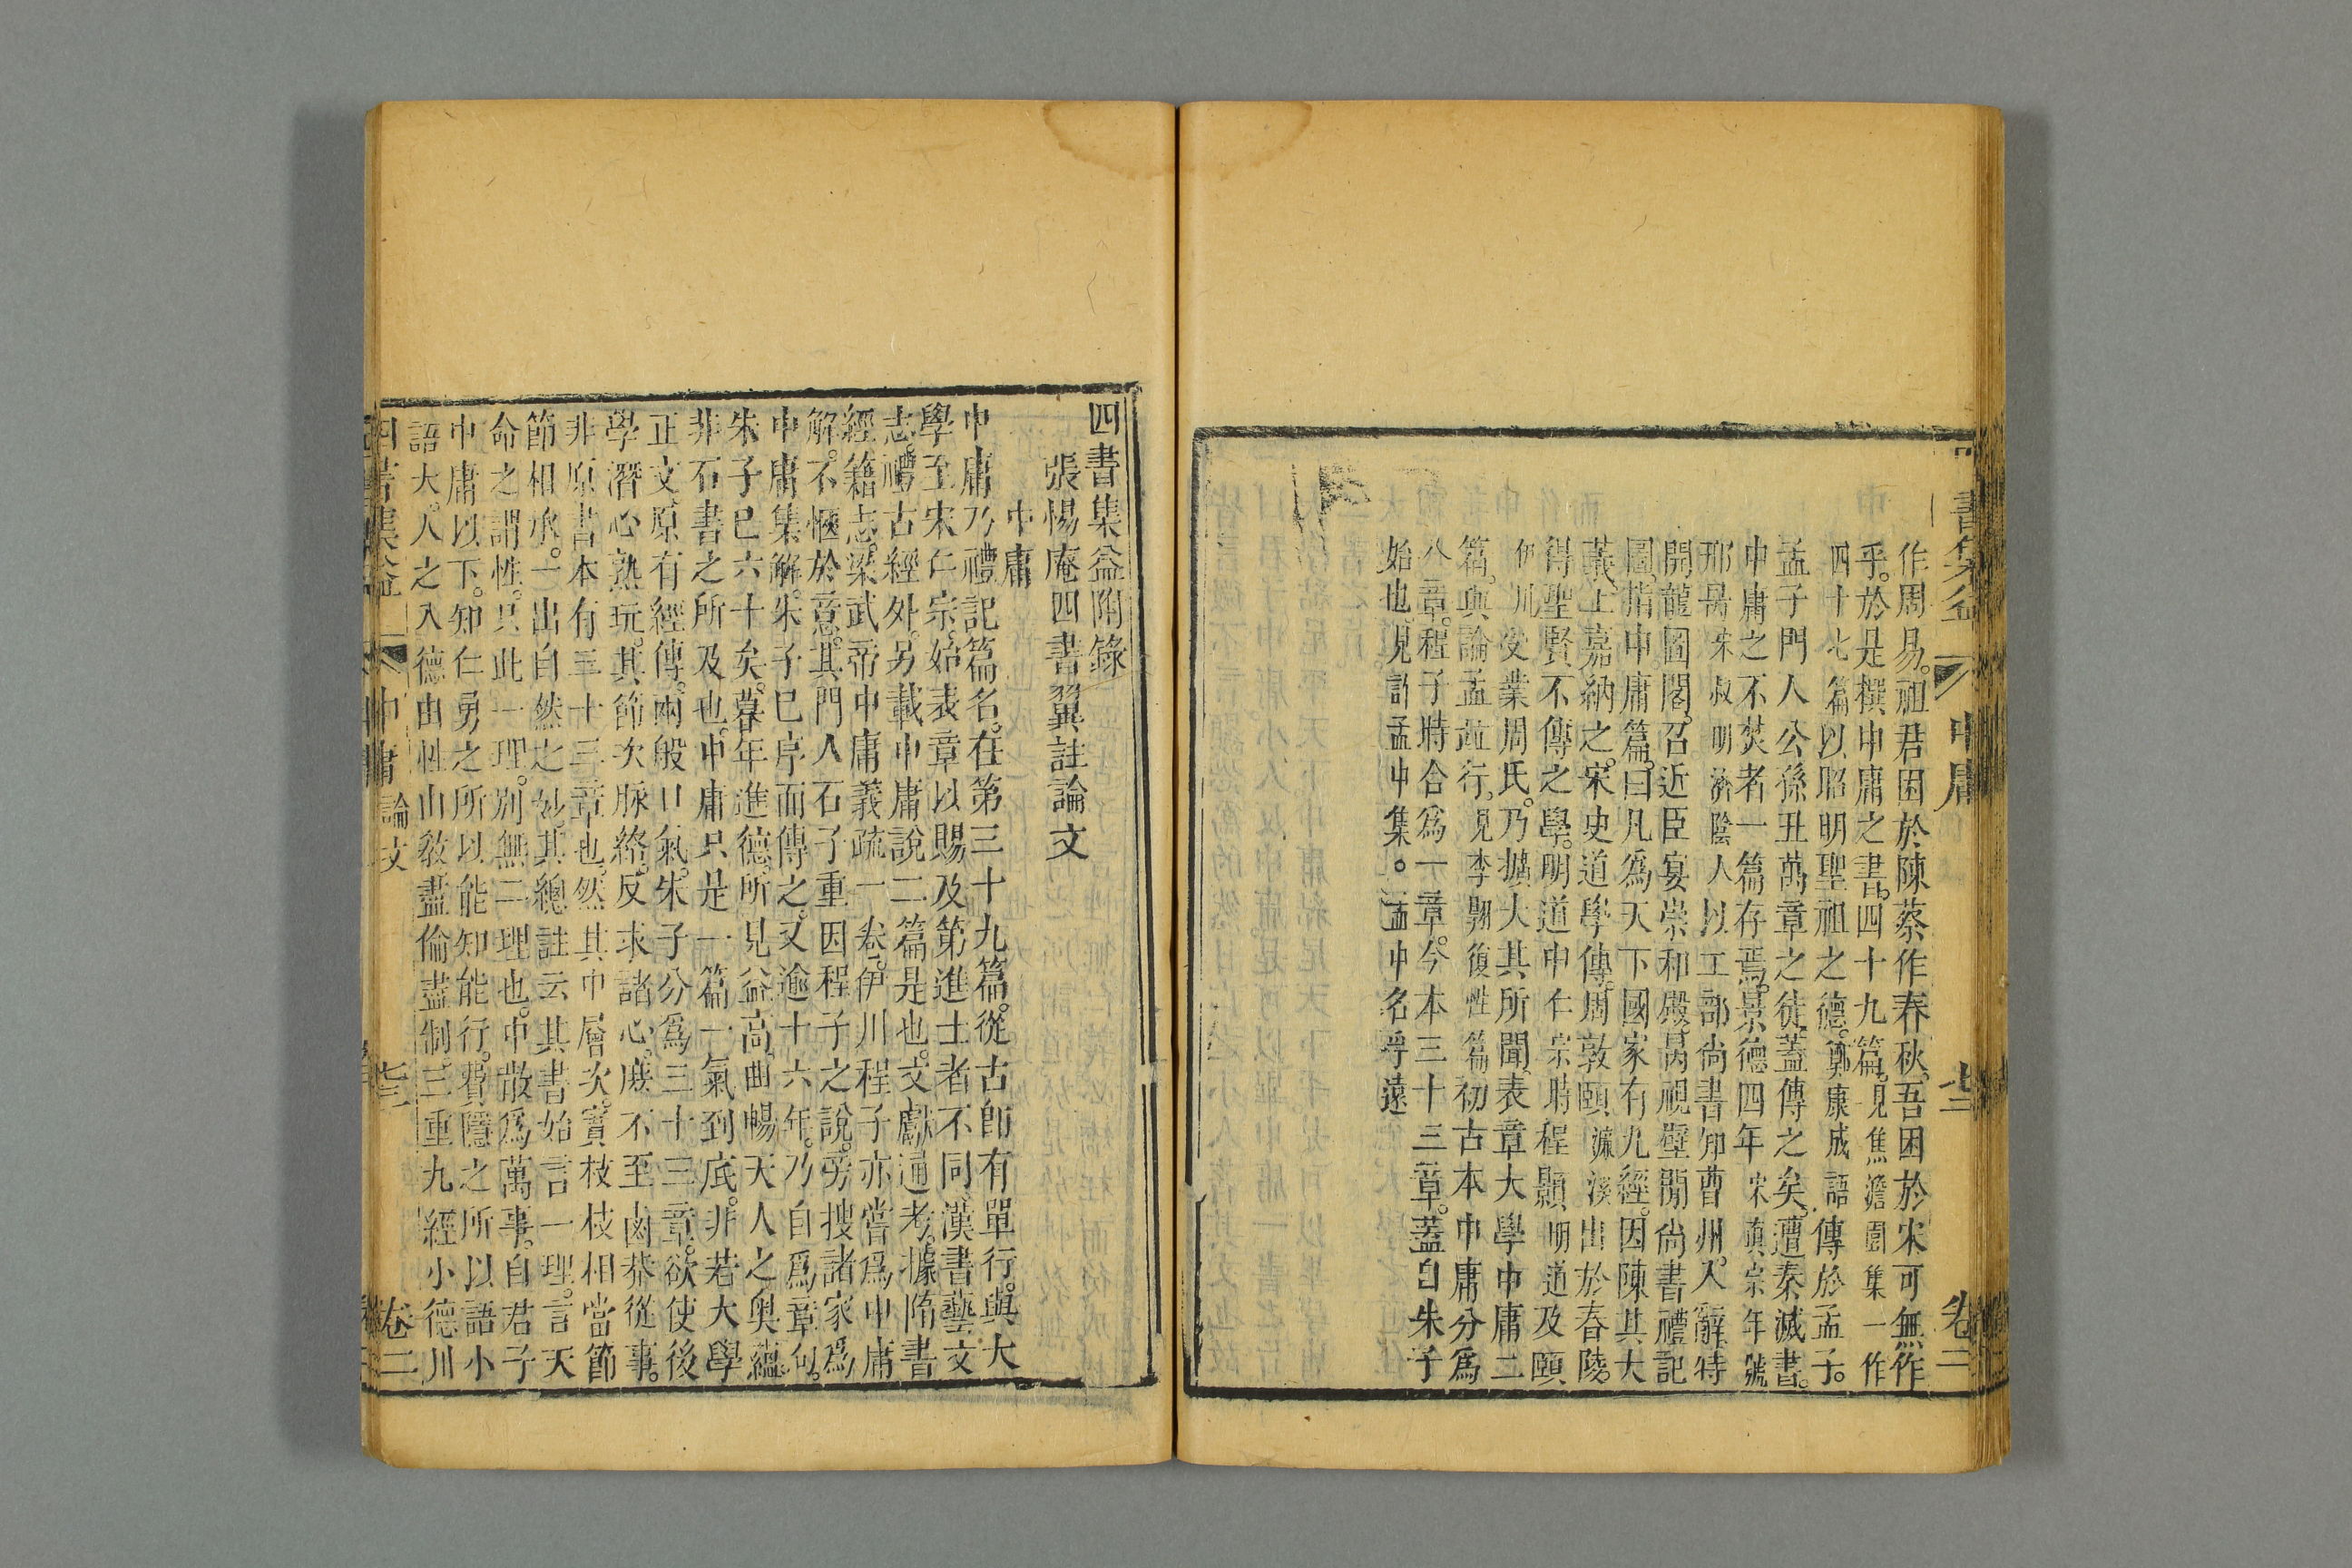 作周易。祖君困於陳蔡作春秋。吾困於宋可無作
乎。於是撰中庸之書。四十九篇。見焦澹園集一作
四十七篇以昭明聖祖之德。鄭康成語傳於孟子。
孟子門人公孫丑萬章之徒蓋傳之矣。遭秦滅書。
中庸之不焚者一篇存焉。景德四年宋真宗年號
邢昺字叔明濟陰人以工部尚書知曹州。入辭。特
開龍圖閣。召近臣宴崇和殿。昺視壁間尚書禮記
圖。指中庸篇。曰凡為天下國家有九經。因陳其大
義。上嘉納之。宋史道學傳。周敦頤濂溪出於舂陵。
得聖賢不傳之學。明道中仁宗時程顥明道及頤
伊川受業周氏。乃擴大其所聞。表章大學中庸二
篇。與論孟並行。見李翺復性篇初古本中庸分為
八章。程子時合為一章。今本三十三章。蓋自朱子
始也見許孟中集。孟中名孚遠
書集益 中庸 七三 卷二
四書集益附錄
張惕庵四書翼註論文
中庸
中庸乃禮記篇名。在第三十九篇。從古即有單行。與大
學至宋仁宗。始表章以賜及第進士者不同。漢書藝文
志。禮古經外。另載中庸說二篇是也。文獻通考。據隋書
經籍志。梁武帝中庸義疏一卷。伊川程子亦嘗為中庸
解。不愜於意。其門人石子重因程子之說。旁搜諸家為
中庸集解。朱子已序而傳之。又逾十六年。乃自為章句。
朱子已六十矣。暮年進德。所見益高。曲暢天人之奧蘊。
非石書之所及也。中庸只是一篇一氣到底。非若大學
正文原有經傳。兩般口氣。朱子分為三十三章。欲使後
學潛心熟玩。其節次脈絡。反求諸心。庶不至鹵莽從事。
非原書本有三十三章也。然其中層次。實枝枝相當節
節相承。一出自然之妙。其總註云其書始言一理。言天
命之謂性。只此一理。別無二理也。中散為萬事。自君子
中庸以下。知仁勇之所以能知能行。費隱之所以語小
語大。人之入德由性由教盡倫盡制。三重九經小德川
四書集益 中庸論文 七三 卷二